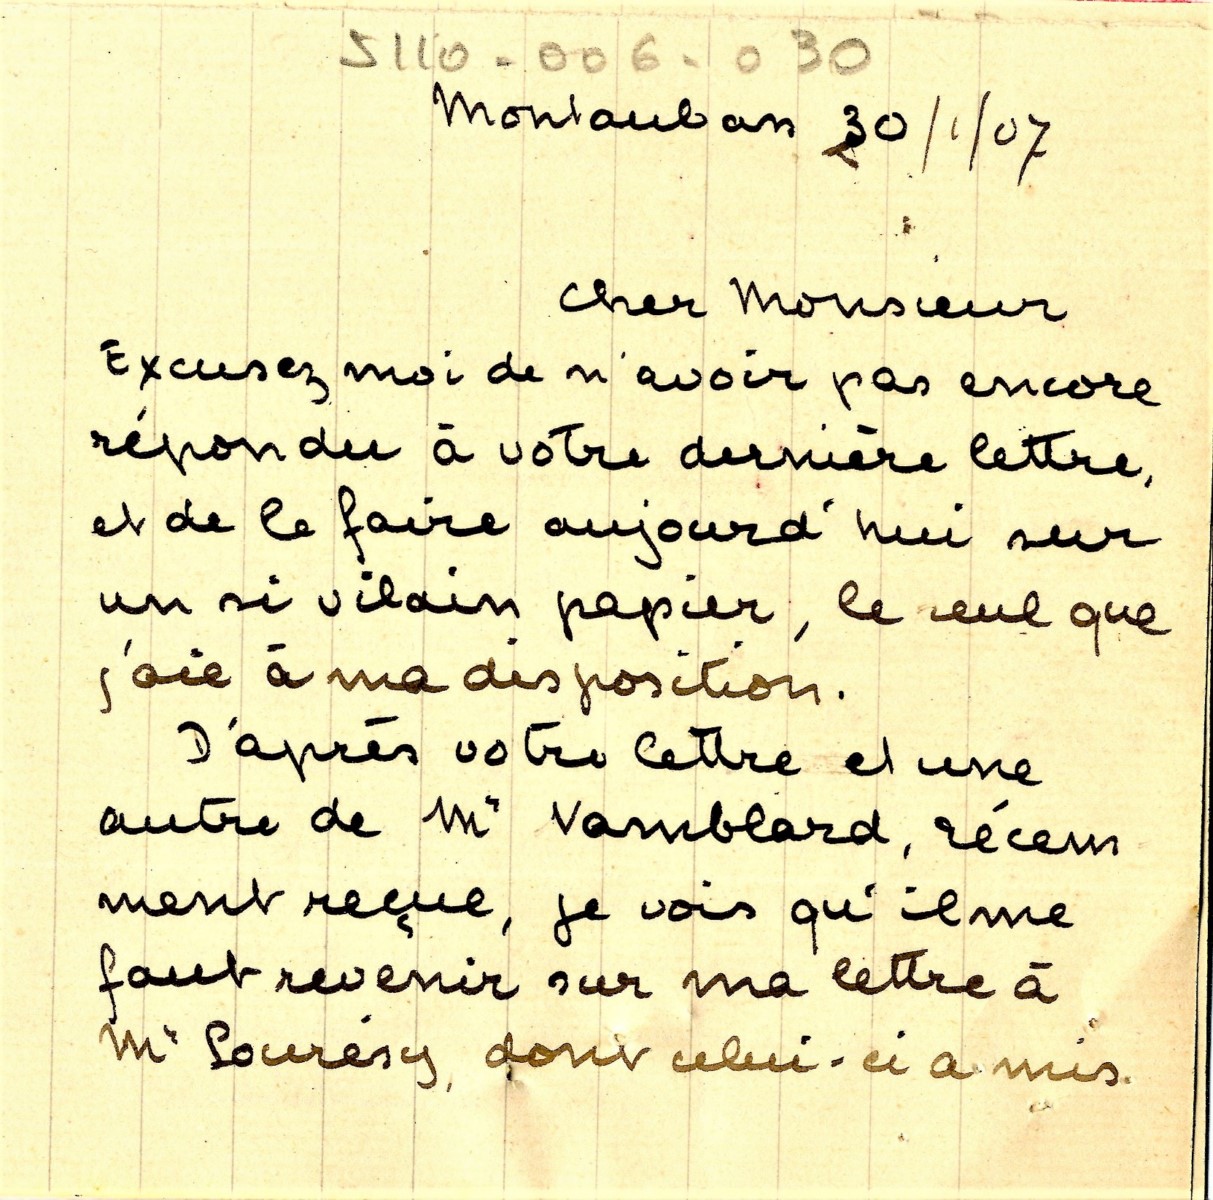 S110-006-030
Montauban 30/1/07
Cher Monsieur
Excusez moi de n'avoir pas encore
répondu à votre dernière lettre,
et de le faire aujourd'hui sur
un si vilain papier, le seul que
j'aie à ma disposition.
D'après votre lettre et une
autre de Mr Vamblard, récem
ment reçue, je vois qu'il me
faut revenir sur ma lettre à
Mr Lourésy, dont celui-ci a mis